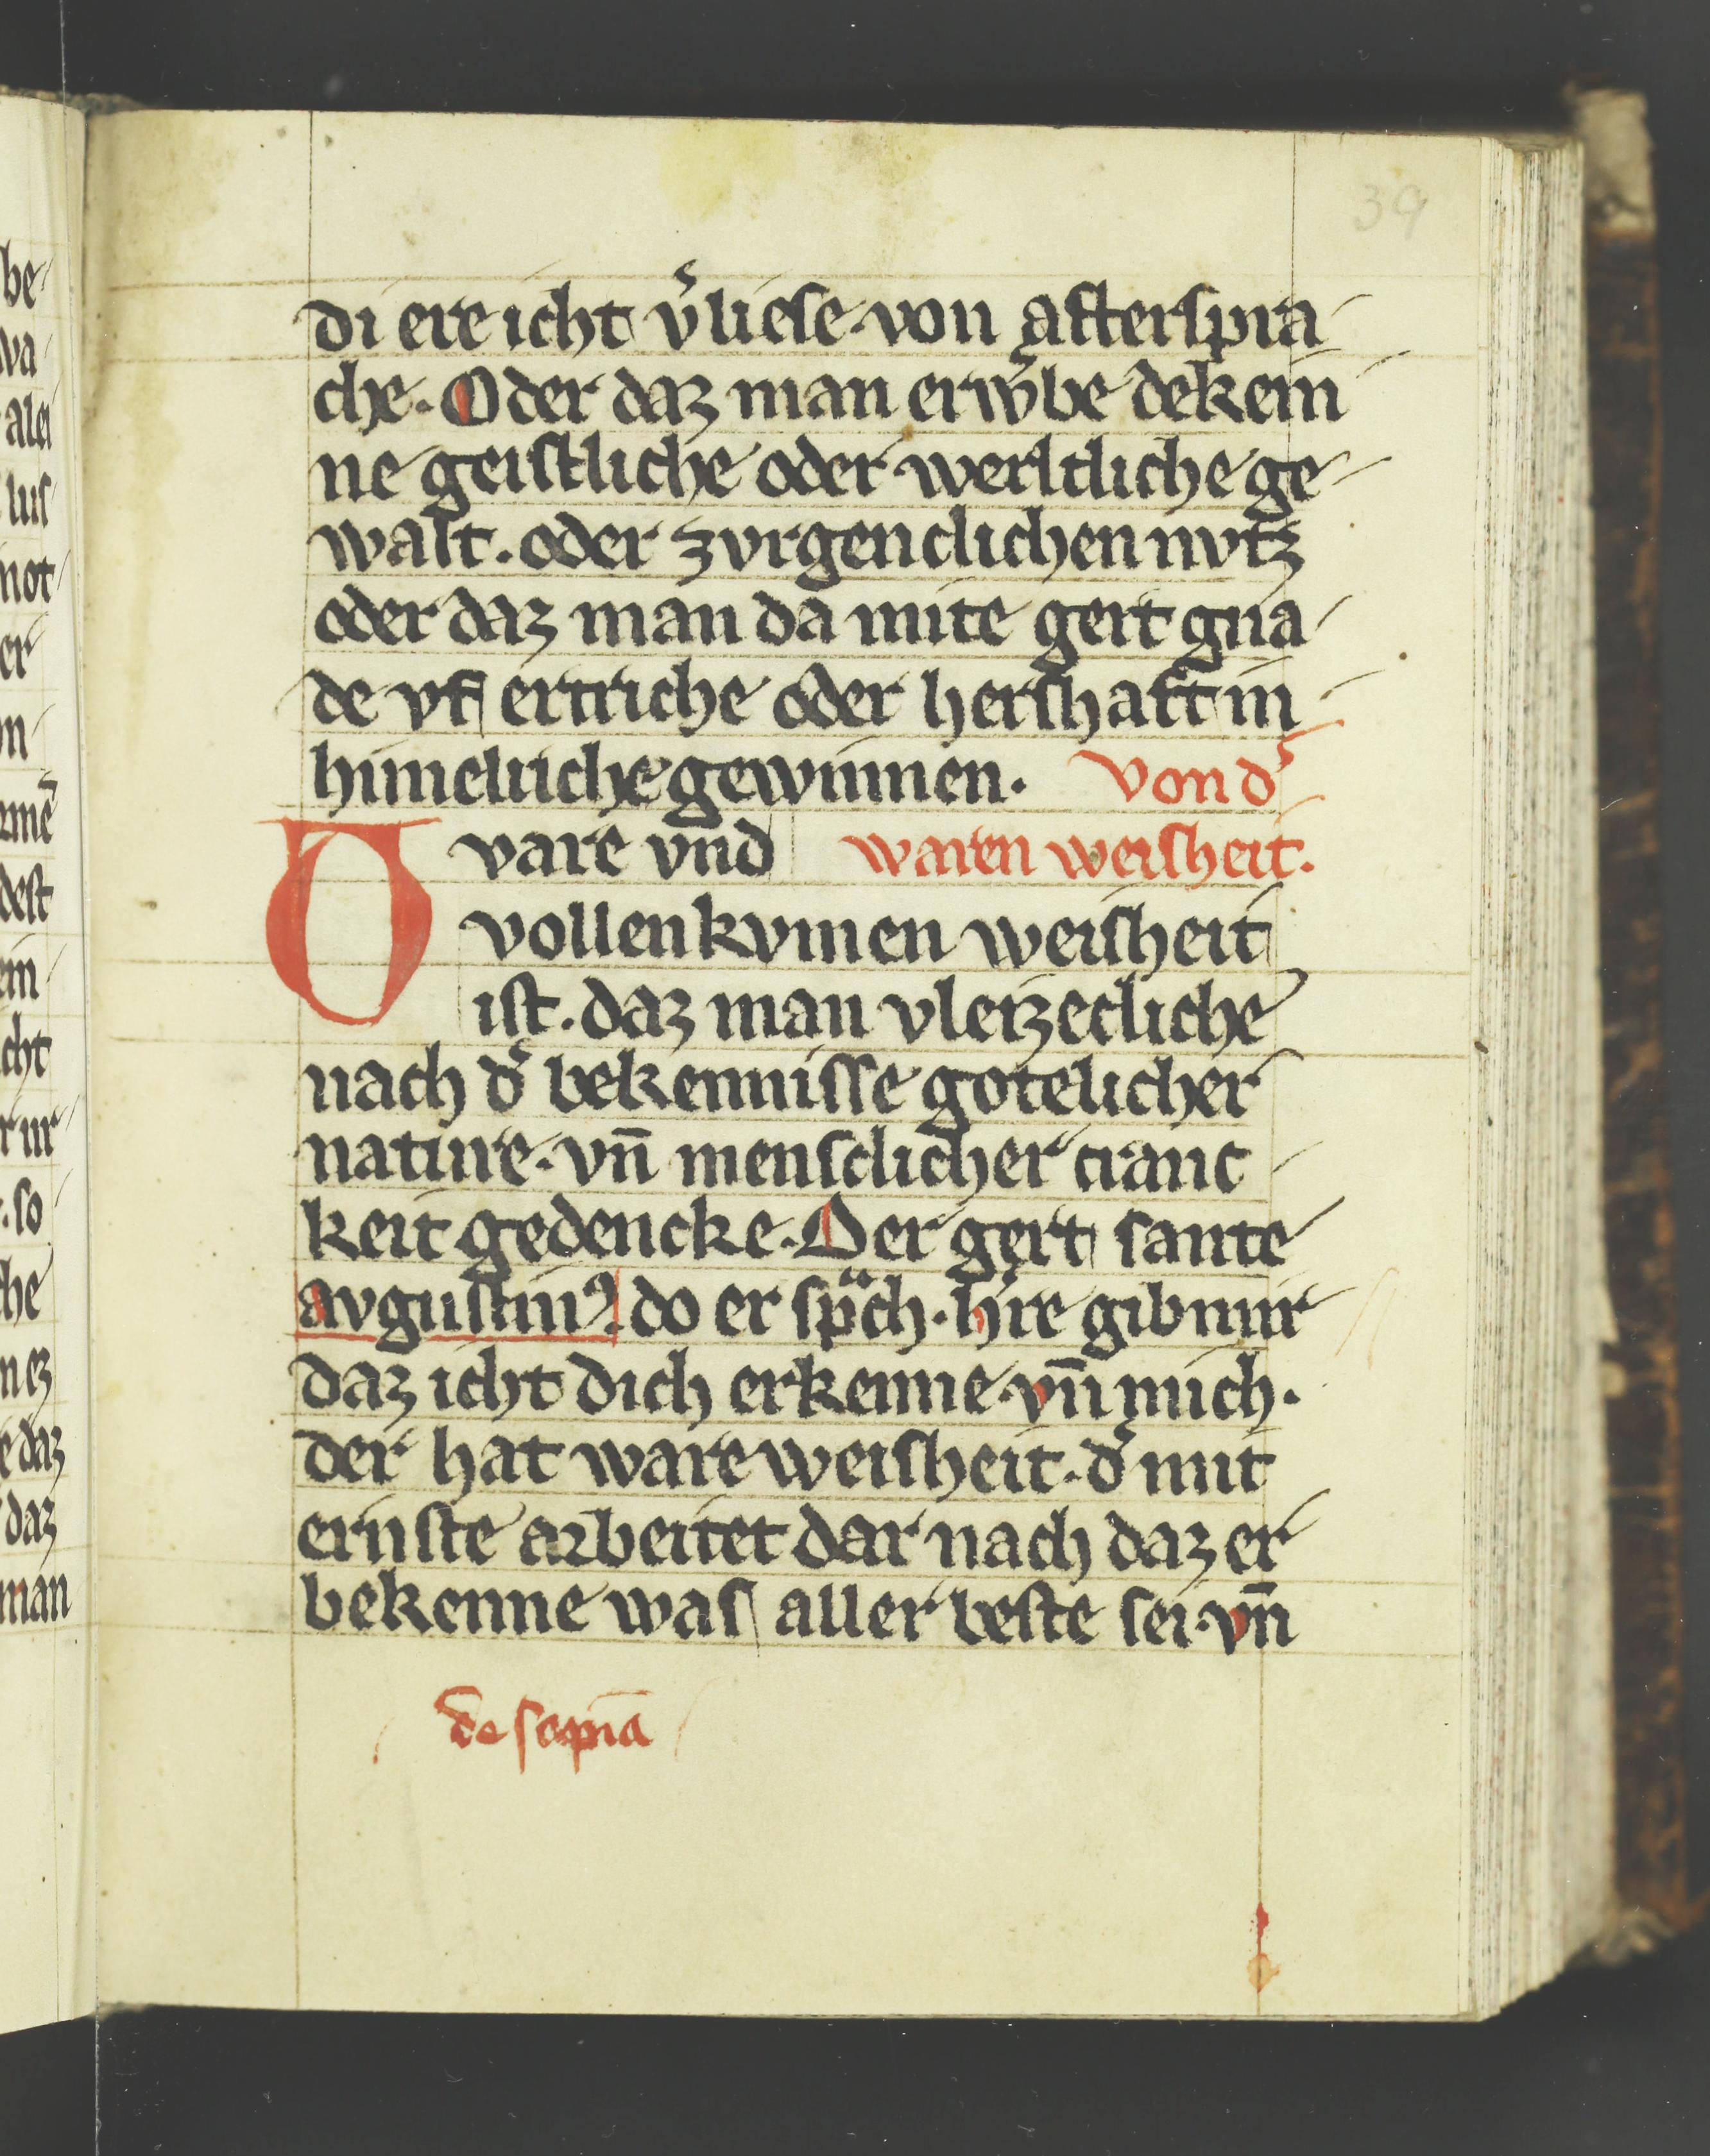 39
di ere icht v͛liese · von afterspra
che · Oder daz man erw͛be dekein
ne geistliche oder werltliche ge
walt · oder zvrgenclichen nvtz
oder daz man da mite gert gna
de vf ertriche oder hershaft in
himelriche gewinnen · von d͛
Vvare vnd waren weisheit ·
vollenkvmen weisheit
ist · daz man vleizecliche
nach d͛ bekennisse gotelicher
nature · vn̄ mensclicher cranc
keit gedencke · Der gert sante
avgustinꝰ · do er spͣch · h͛re gib mir
daz icht dich erkenne · vn̄ mich ·
der hat ware weisheit · d͛ mit
ernste arbeitet dar nach daz er
bekenne was aller beste sei · vn̄
de sapīa